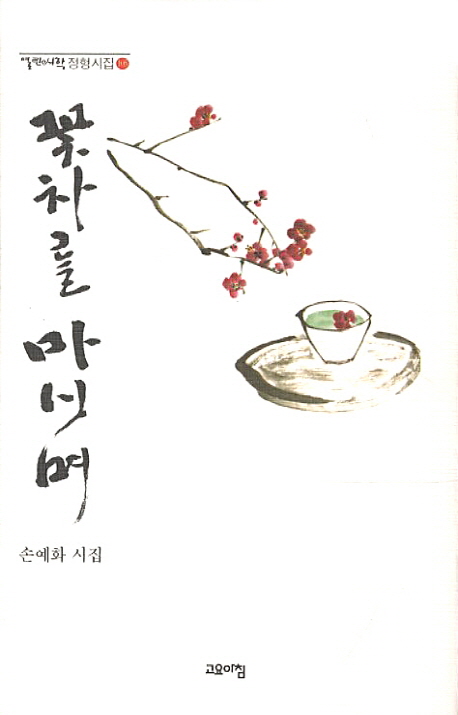 열린시학 정형시집
꽃차를 마시며
손예화 시집
고요아침